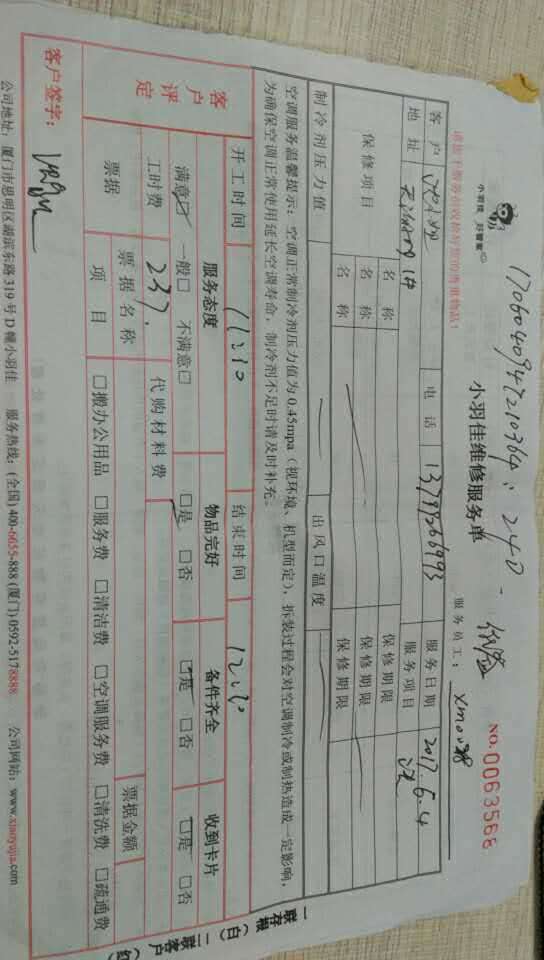 1706040947210364：240
小羽佳 好管家
小羽佳维修服务单
NO.0063568
服务员工：xm0028
客户
电话 13799266993
服务日期 2017.6.4
地址
服务项目
保修项目
名称
保修期限
名称
保修期限
名称
保修期限
制冷剂压力值
出风口温度
空调服务温馨提示：空调正常制冷剂压力值为0.45mpa（视环境、机型而定），拆装过程会对空调制冷或制热造成一定影响，
为确保空调正常使用延长空调寿命，制冷剂不足时请及时补充。
开工时间 11:30
结束时间 12:30
客户评定
服务态度
物品完好
备件齐全
收到卡片
满意☑ 一般□ 不满意□
□是 □否
□是 □否
□是 □否
工时费 237.
代购材料费
票据
票据名称
票据金额
项目
□搬办公用品 □服务费 □清洁费 □空调服务费 □清洗费 □疏通费
客户签字：
公司地址：厦门市思明区湖滨东路319号D幢小羽佳 服务热线：(全国)400-6655-888 (厦门)0592-5178888 公司网站：www.xiaoyujia.com
一联存根（白）二联客户（红）